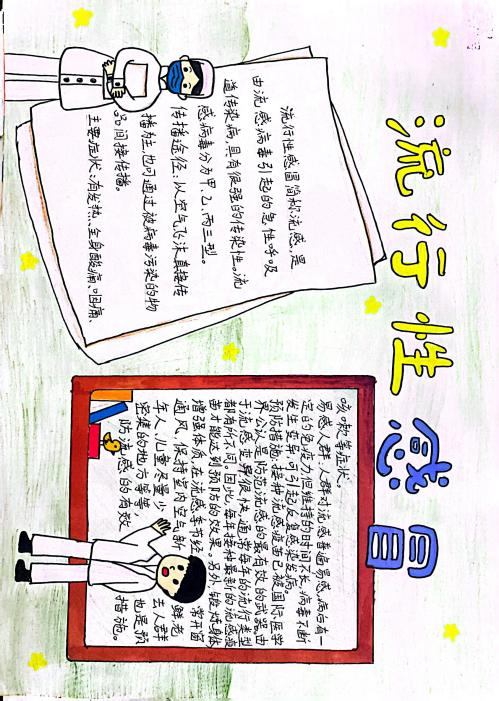 流行性感冒
流行性感冒简称流感,是
由流感病毒引起的急性呼吸
道传染病,具有很强的传染性。流
感病毒分为甲、乙、丙三型。
传播途径:以空气飞沫直接传
播为主,也可通过被病毒污染的物
品间接传播。
主要症状:有发热、全身酸痛、咽痛、
咳嗽等症状。
易感人群:人群对流感普遍易感,病后有一
定的免疫力,但维持的时间不长,病毒不断
发生变异,可引起反复感染发病。
预防措施:接种流感疫苗已被国际医学
界公认是防范流感的最有效的武器。由
于流感变异很快,通常每年的流行类型
都有所不同。因此,每年接种最新的流感疫
苗才能达到预防的效果。另外,锻炼身体
增强体质,在流感季节经常开窗
通风,保持室内空气新鲜,老
年人、儿童尽量少去人群
密集的地方等等也是预
防流感的有效措施。